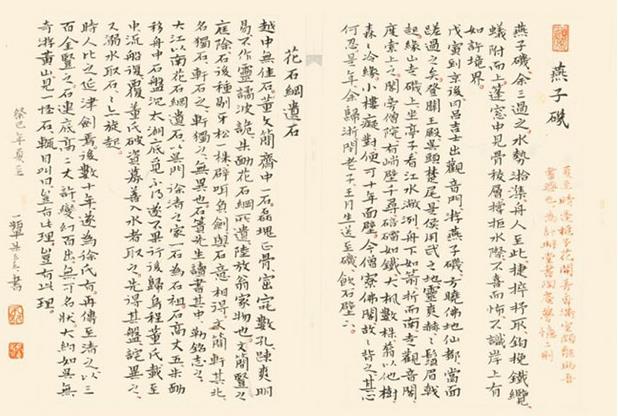 燕子磯
燕子磯余三過之水勢湁潗舟人至此捷捽抒取鉤挽鐵纜
蟻附而上蓬窓中見骨稜層撐拒水際不喜而怖不識岸上有
如許境界
戊寅到京後同呂吉士出觀音門游燕子磯方曉佛地仙都當面
蹉過之矣登關王殿吳頭楚尾是侯用武之地靈爽赫々鬚眉戟
起緣山走磯上坐亭子看江水潎洌舟下如箭折而南走觀音閣
度索上之閣旁僧院有峭壁千尋碚礌如鐵大楓數株蓊以他樹
森々冷綠小樓癡對便可十年面壁今僧寮佛閣故々背之其心
何忍是年余歸浙閔老子王月生送至磯飲石壁下
花石綱遺石
越中無佳石董文簡齋中一石磊塊正骨窋窀數孔疎爽明
易不作靈譎波詭朱勔花石綱所遺陸放翁家物也文簡豎之
庭除石後種剔牙松一株辟咡負劍與石意相得文簡軒其北
名獨石軒石之軒獨之無異也石簣先生讀書其中勒銘志之
大江以南花石綱遺石以吳門徐清之家一石為石祖石高丈五朱勔
移舟中石盤沉太湖底覓不得遂不果行後歸烏程董氏載至
中流船復覆董氏破資募善入水者取之先得其盤詫異之
又溺水取石石亦旋起
時人比之延津劍焉後數十年遂為徐氏有再傳至清之以三
百金豎之石連底高二丈許變幻百出無可名狀大約如吳無
奇游黃山見一怪石輒瞋目叫曰豈有此理豈有此理
癸巳年夏至